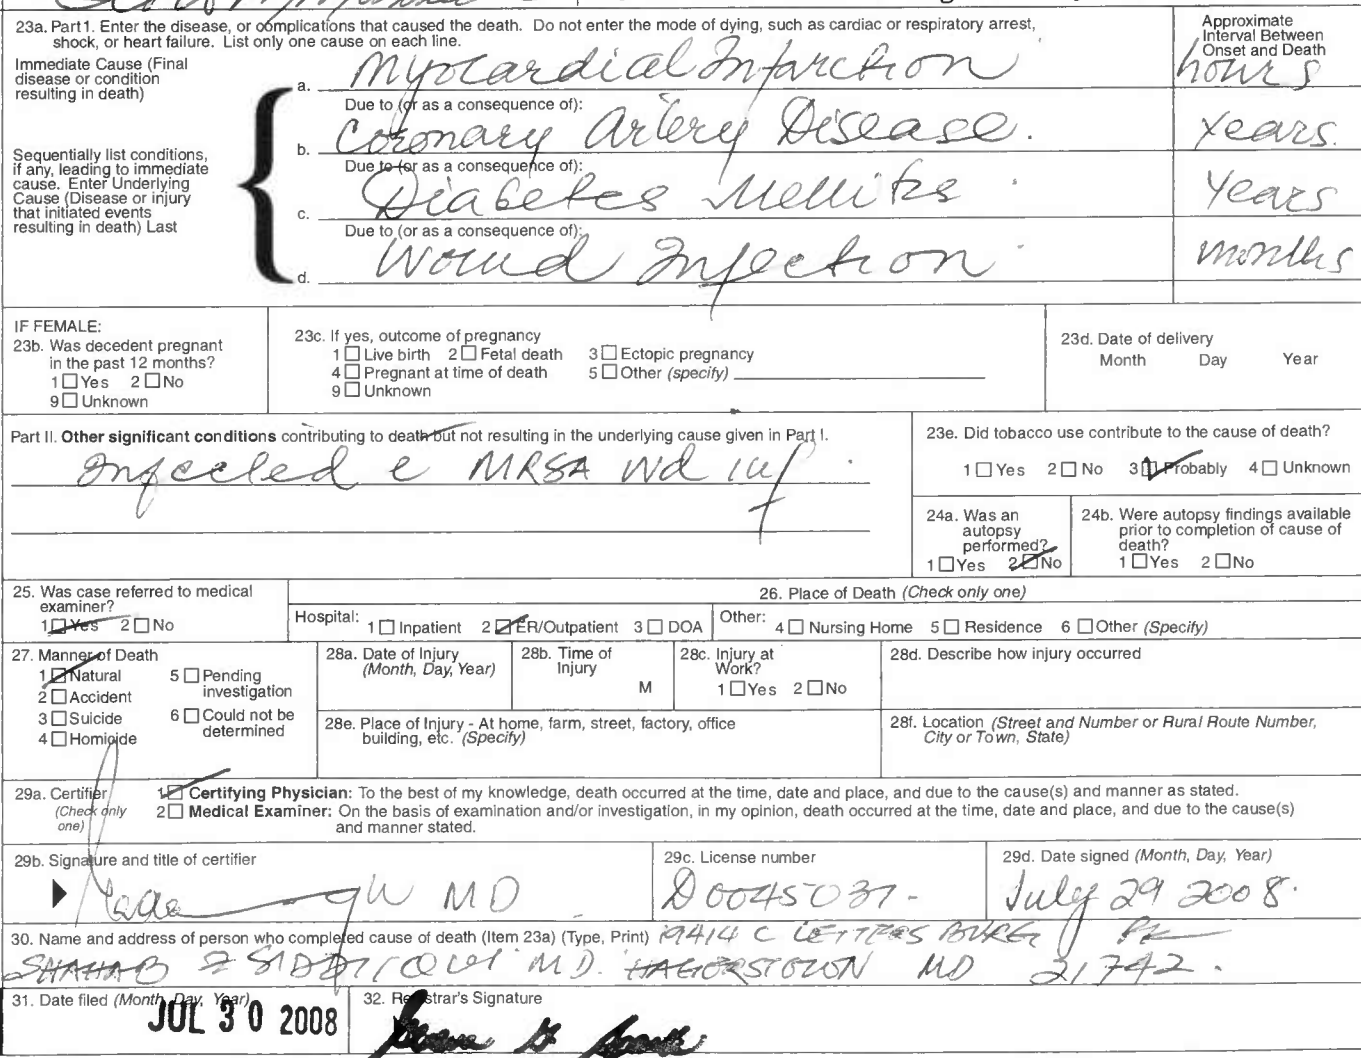 23a. Part1. Enter the disease, or complications that caused the death. Do not enter the mode of dying, such as cardiac or respiratory arrest,
shock, or heart failure. List only one cause on each line.
Approximate
Interval Between
Onset and Death
Immediate Cause (Final
disease or condition
resulting in death)
a. Myocardial Infarction hours
Due to (or as a consequence of):
b. Coronary Artery Disease. years.
Sequentially list conditions,
if any, leading to immediate
cause. Enter Underlying
Cause (Disease or injury
that initiated events
resulting in death) Last
Due to (or as a consequence of):
c. Diabetes Mellitis years
Due to (or as a consequence of):
d. Wound Infection months
IF FEMALE:
23b. Was decedent pregnant
in the past 12 months?
1 ☐ Yes 2 ☐ No
9 ☐ Unknown
23c. If yes, outcome of pregnancy
1 ☐ Live birth 2 ☐ Fetal death 3 ☐ Ectopic pregnancy
4 ☐ Pregnant at time of death 5 ☐ Other (specify)
9 ☐ Unknown
23d. Date of delivery
Month Day Year
Part II. Other significant conditions contributing to death but not resulting in the underlying cause given in Part I.
Infected c MRSA Wd inf.
23e. Did tobacco use contribute to the cause of death?
1 ☐ Yes 2 ☐ No 3 ☑ Probably 4 ☐ Unknown
24a. Was an
autopsy
performed?
1 ☐ Yes 2 ☑ No
24b. Were autopsy findings available
prior to completion of cause of
death?
1 ☐ Yes 2 ☐ No
25. Was case referred to medical
examiner?
1 ☑ Yes 2 ☐ No
26. Place of Death (Check only one)
Hospital: 1 ☐ Inpatient 2 ☑ ER/Outpatient 3 ☐ DOA Other: 4 ☐ Nursing Home 5 ☐ Residence 6 ☐ Other (Specify)
27. Manner of Death
1 ☑ Natural 5 ☐ Pending
investigation
2 ☐ Accident
3 ☐ Suicide 6 ☐ Could not be
determined
4 ☐ Homicide
28a. Date of Injury
(Month, Day, Year)
28b. Time of
Injury
M
28c. Injury at
Work?
1 ☐ Yes 2 ☐ No
28d. Describe how injury occurred
28e. Place of Injury - At home, farm, street, factory, office
building, etc. (Specify)
28f. Location (Street and Number or Rural Route Number,
City or Town, State)
29a. Certifier
(Check only
one)
1 ☑ Certifying Physician: To the best of my knowledge, death occurred at the time, date and place, and due to the cause(s) and manner as stated.
2 ☐ Medical Examiner: On the basis of examination and/or investigation, in my opinion, death occurred at the time, date and place, and due to the cause(s)
and manner stated.
29b. Signature and title of certifier
MD
29c. License number
D0045037
29d. Date signed (Month, Day, Year)
July 29 2008.
30. Name and address of person who completed cause of death (Item 23a) (Type, Print) 19414 C LEITERSBURG PK
SHAHAB Z SIDDIQUI MD. HAGERSTOWN MD 21742.
31. Date filed (Month, Day, Year)
JUL 30 2008
32. Registrar's Signature